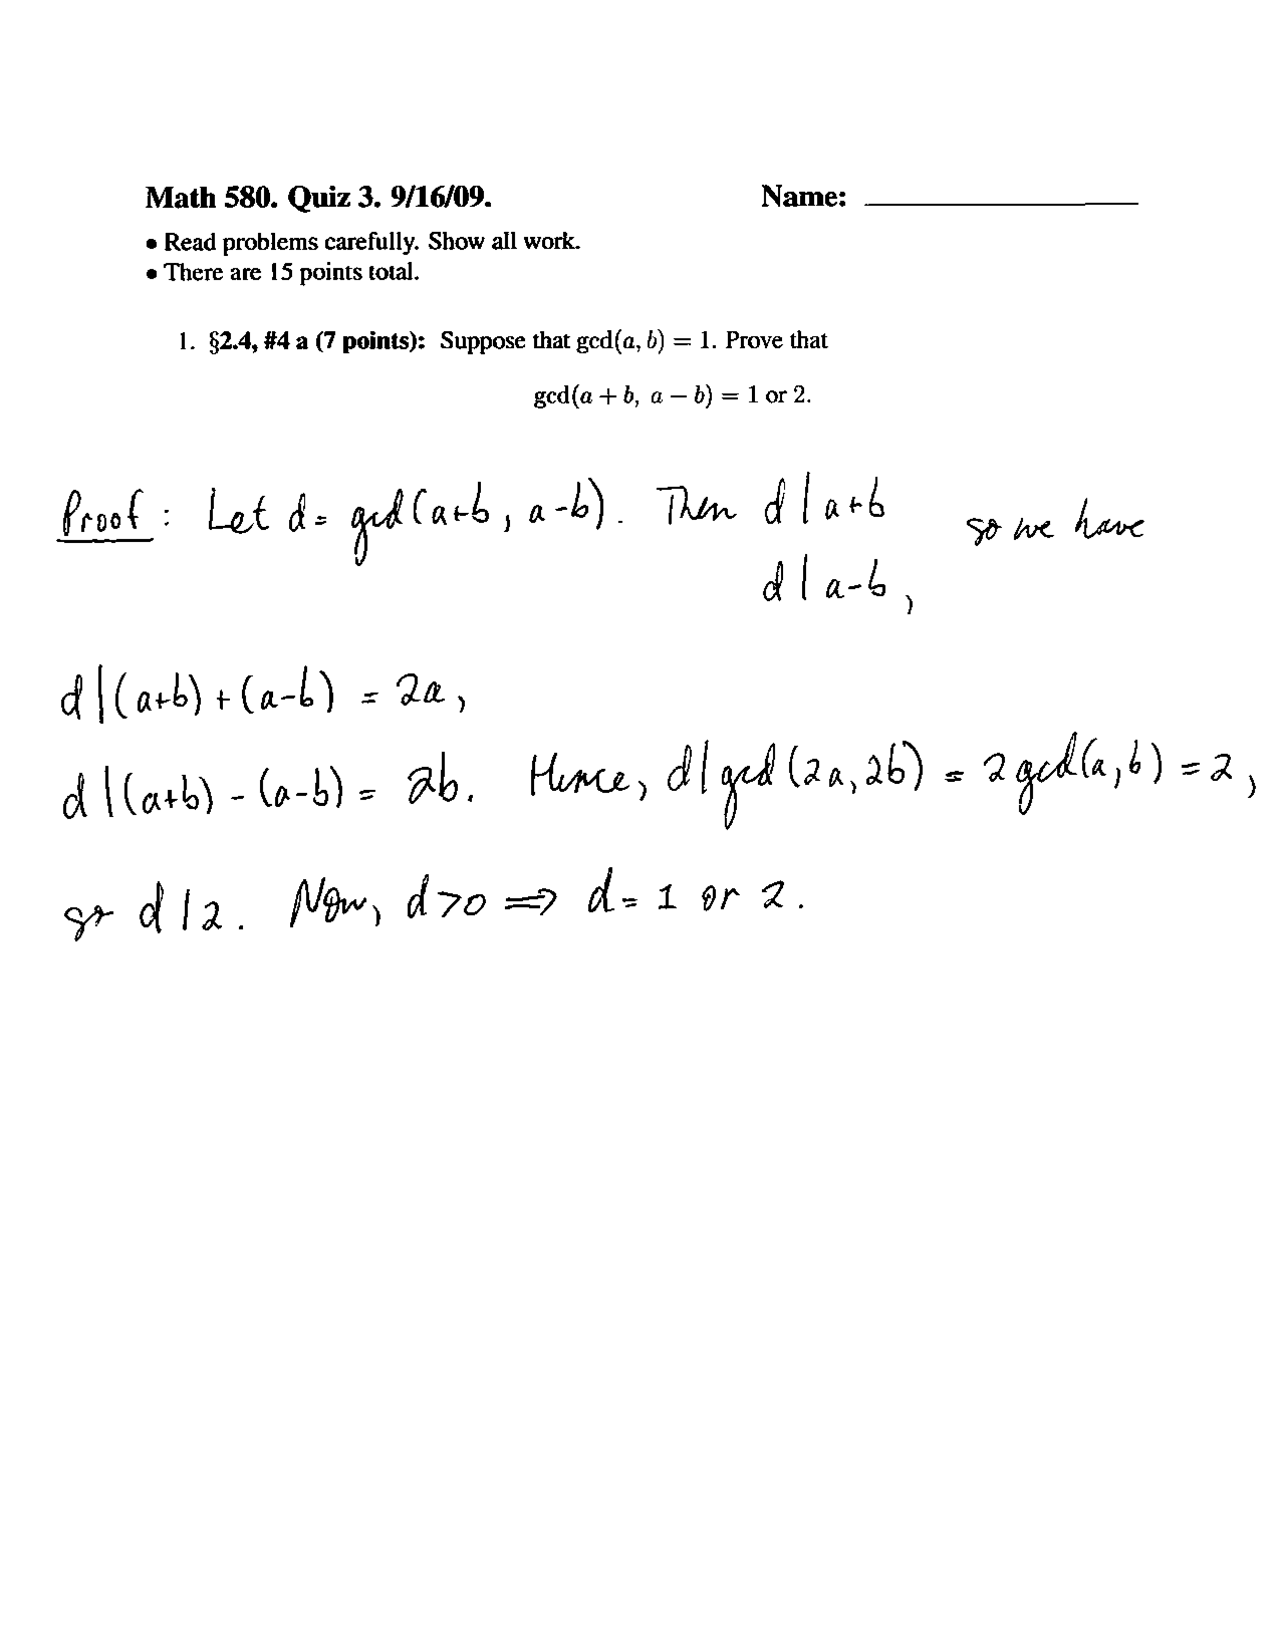 Math 580. Quiz 3. 9/16/09. Name:
• Read problems carefully. Show all work.
• There are 15 points total.
1. §2.4, #4 a (7 points): Suppose that gcd(a, b) = 1. Prove that
gcd(a + b, a − b) = 1 or 2.
Proof: Let d = gcd(a+b, a-b). Then d | a+b so we have
d | a-b,
d | (a+b) + (a-b) = 2a,
d | (a+b) - (a-b) = 2b. Hence, d | gcd(2a, 2b) = 2 gcd(a, b) = 2,
so d | 2. Now, d>0 ⟹ d = 1 or 2.